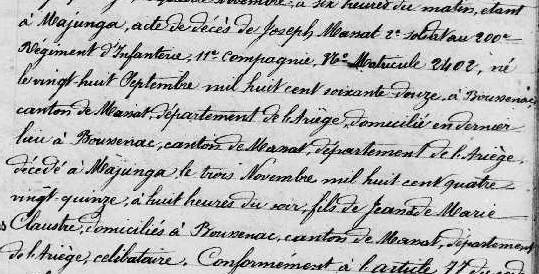 novembre, à six heures du matin, étant
à Majunga, acte de décès de Joseph Massat 2e soldat au 200e
Régiment d'Infanterie, 11e compagnie, No Matricule 2402, né
le vingt-huit Septembre mil huit cent soixante douze, à Boussenac,
canton de Massat, département de l'Ariège, domicilié en dernier
lieu à Boussenac, canton de Massat, département de l'Ariège,
décédé à Majunga le trois Novembre mil huit cent quatre
vingt-quinze, à huit heures du soir, fils de Jean & de Marie
Claustre, domiciliés à Boussenac, canton de Massat, département
de l'Ariège, célibataire. Conformément à l'article